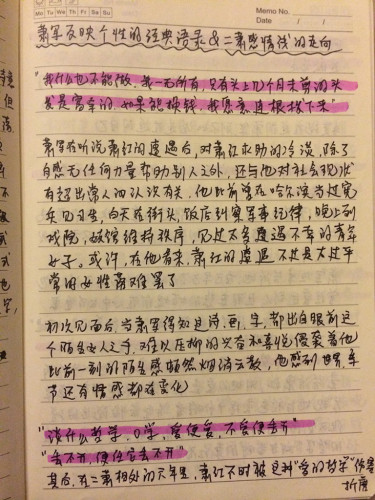 Mo Tu We Th Fr Sa Su
Memo No.
Date / /
萧军反映个性的经典语录&二萧感情线的走向
"我什么也不能做，我一无所有，只有头上几个月未剪的头
发是富余的，如果能换钱，我愿意连根拔下来"
萧军在听说萧红的遭遇后，对萧红求助的冷淡，除了
自感无任何力量帮助别人之外，还与他对社会现状
有超出常人的认识有关。他此前曾在哈尔滨当过宪
兵见习生，白天在街头，饭店纠察军事纪律，晚上到
戏院，妓馆维持秩序，见过太多遭遇不幸的青年
女子。或许，在他看来，萧红的遭遇不过是太过平
常的女性苦难罢了
初次见面后，当萧军得知这诗，画，字，都出自眼前这
个陌生女人之手，难以压抑的兴奋和喜悦侵袭着他
此前一刻的陌生感顿然烟消云散，他感到世界，季
节还有情感都在变化
"谈什么哲学，学，爱便爱，不爱便丢开"
"丢不开，便任它丢不开"
其后，在二萧相处的六年里，萧红不时被这种"爱的哲学"伤害
折磨